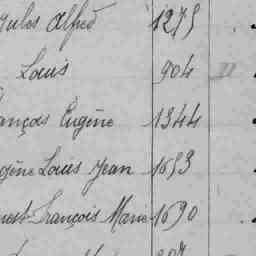 Jules Alfred 1275
Louis 904
François Eugène 1344
Eugène Louis Jean 1653
Ernest François Marie 1690